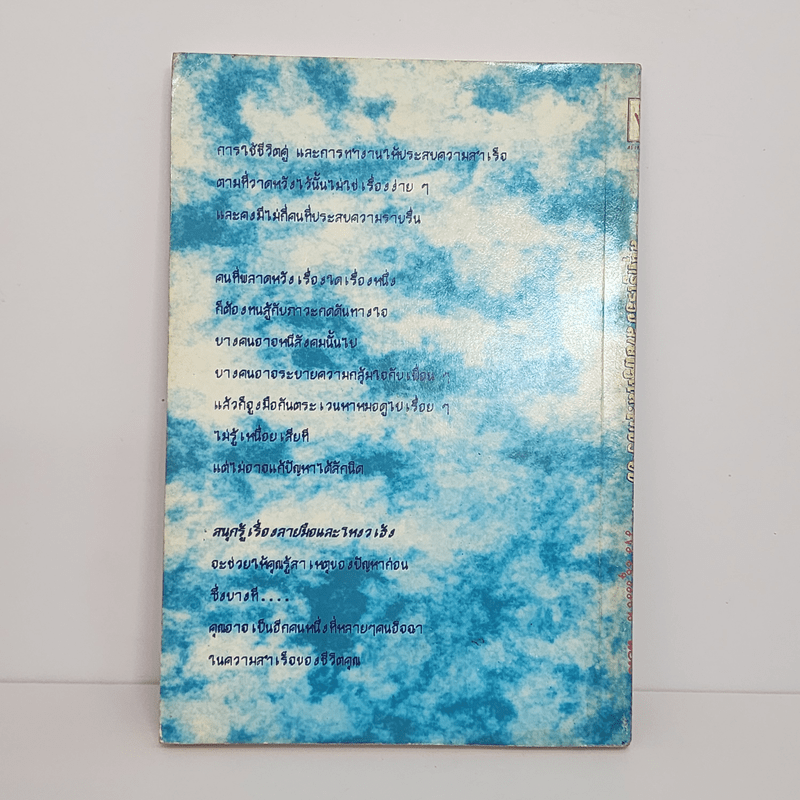 การใช้ชีวิตคู่ และการทำงานให้ประสบความสำเร็จ
ตามที่วาดหวังไว้นั้นไม่ใช่เรื่องง่าย ๆ
และคงมีไม่กี่คนที่ประสบความราบรื่น
คนที่พลาดหวังเรื่องใดเรื่องหนึ่ง
ก็ต้องทนสู้กับภาวะกดดันทางใจ
บางคนอาจหนีสังคมนั้นไป
บางคนอาจระบายความกลุ้มใจกับเพื่อน ๆ
แล้วก็จูงมือกันตระเวนหาหมอดูไปเรื่อย ๆ
ไม่รู้เหนื่อยเสียที
แต่ไม่อาจแก้ปัญหาได้สักนิด
สนุกรู้เรื่องลายมือและโหงวเฮ้ง
จะช่วยให้คุณรู้สาเหตุของปัญหาก่อน
ซึ่งบางที....
คุณอาจเป็นอีกคนหนึ่งที่หลายๆคนอิจฉา
ในความสำเร็จของชีวิตคุณ